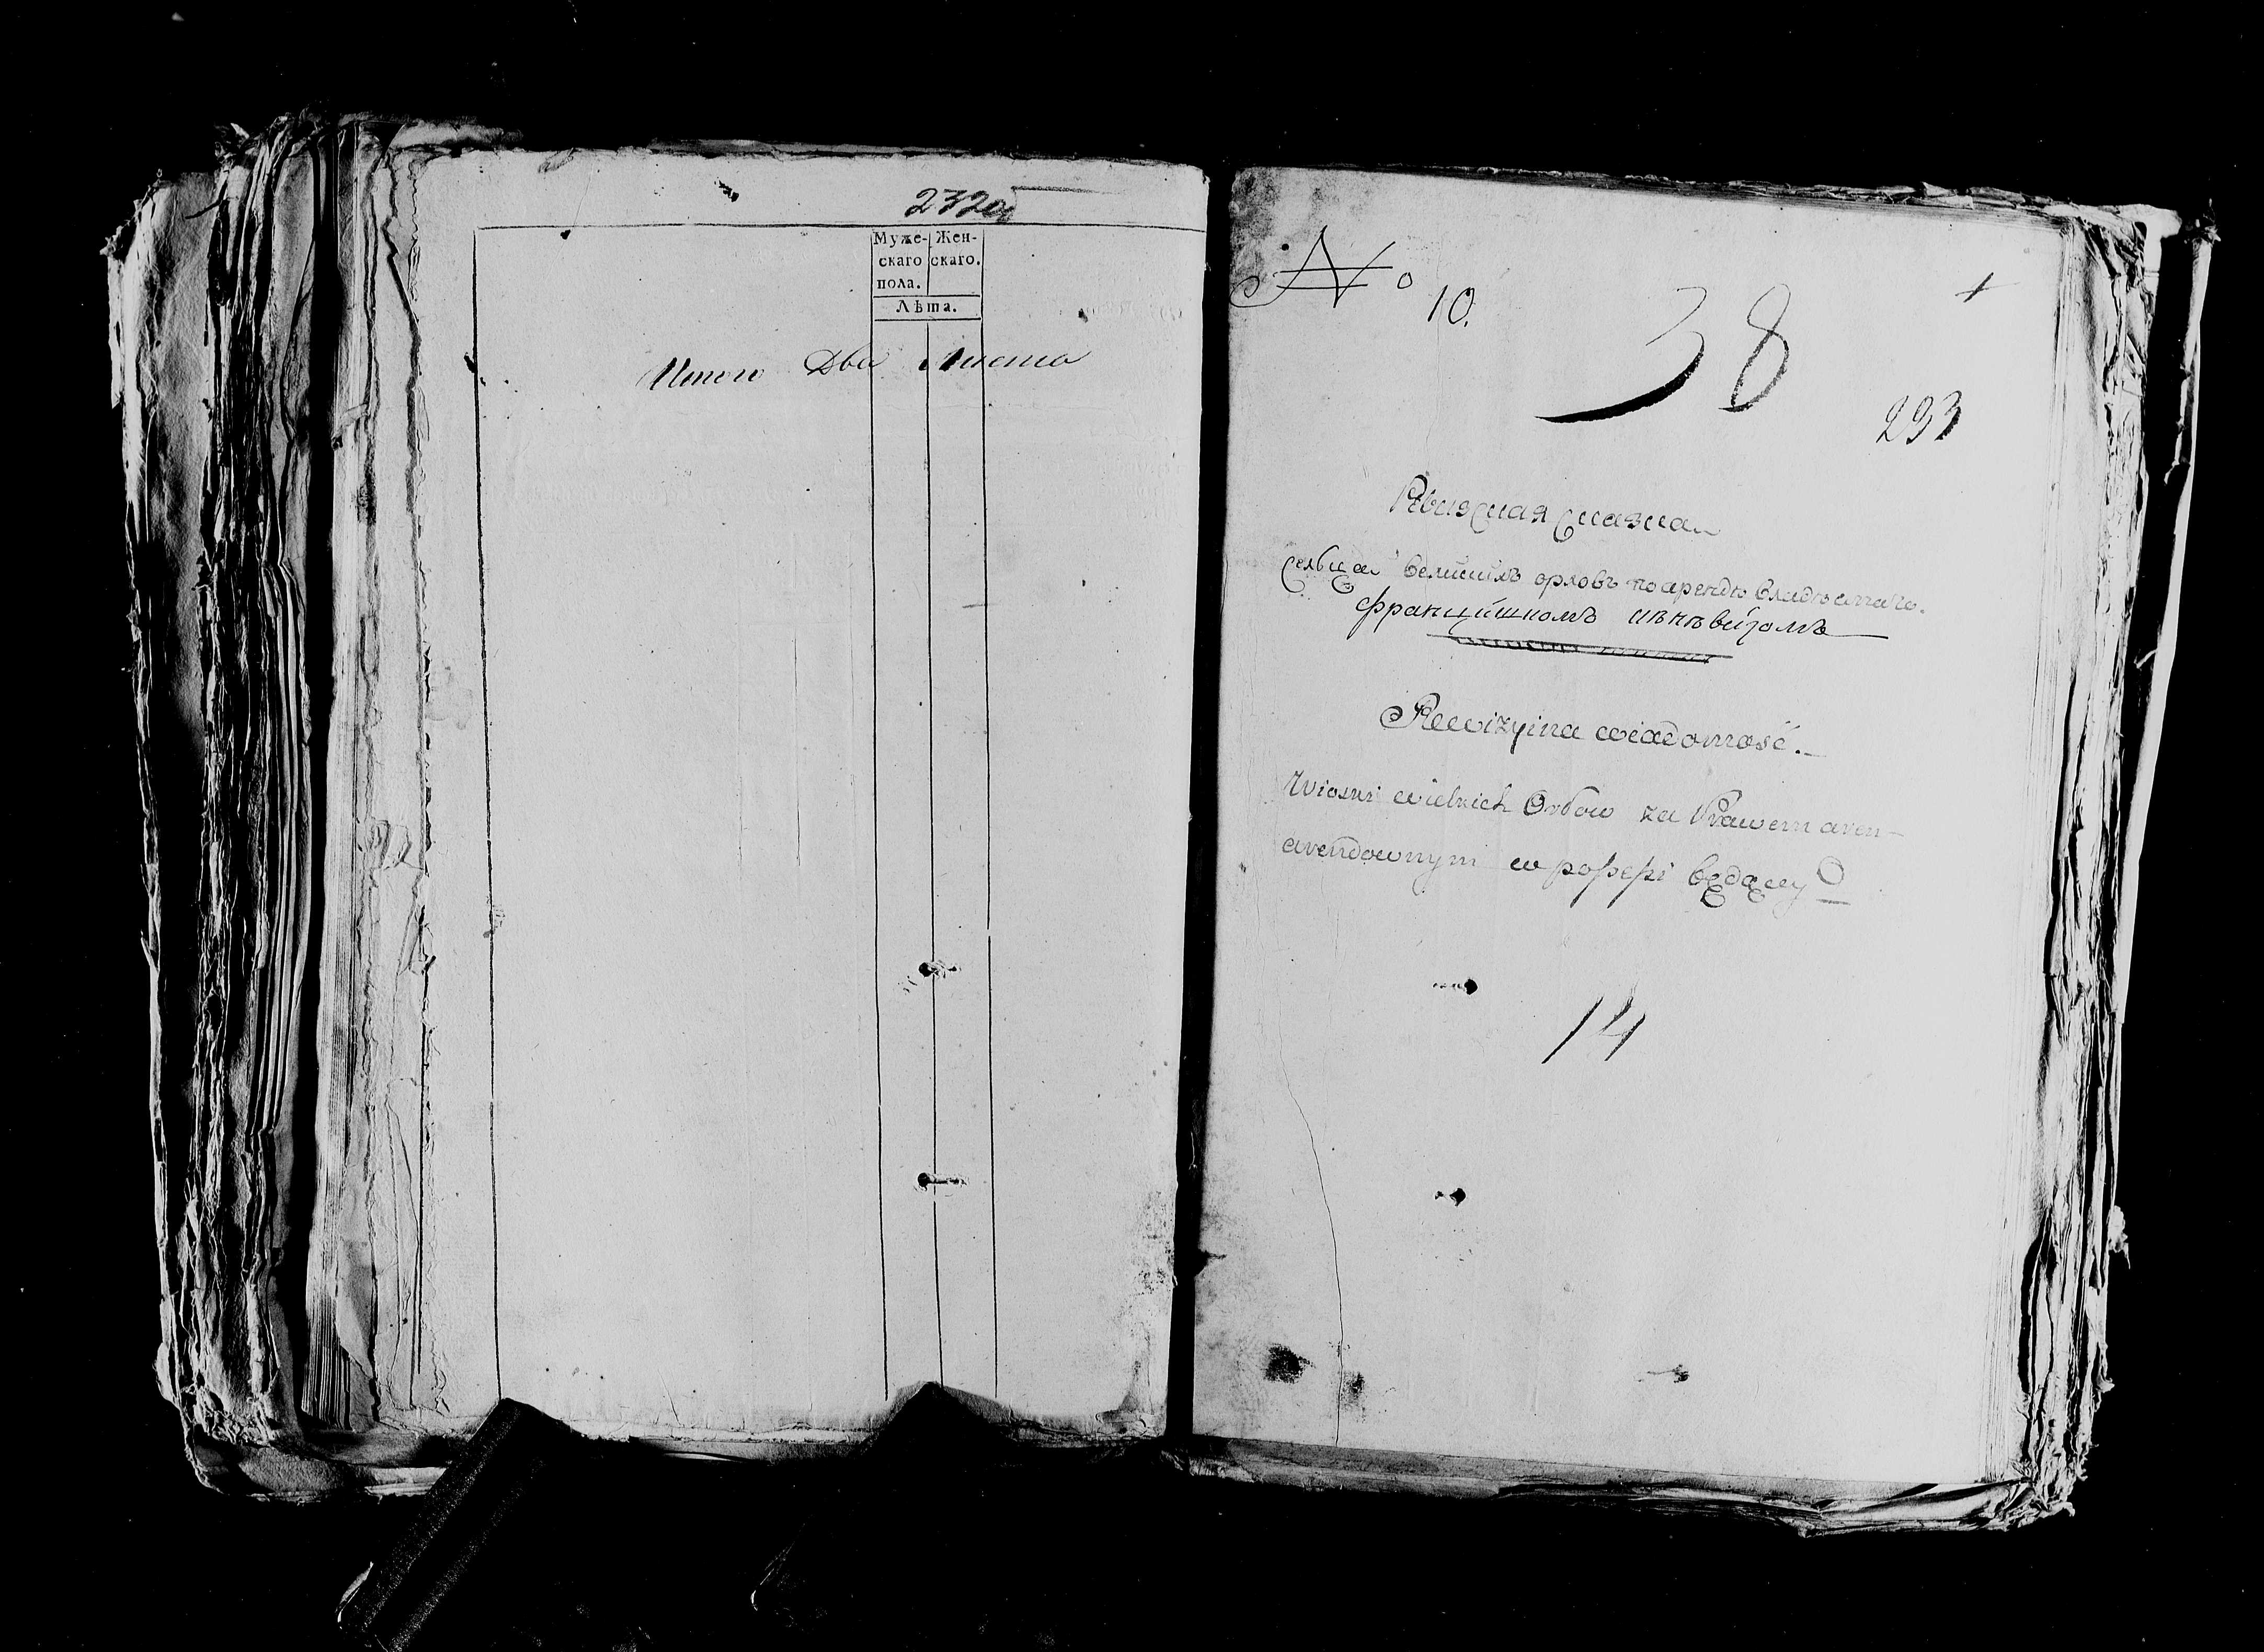 232об
Муже- Жен-
скаго скаго.
пола.
Лѣта.
Итого Два Листа
№ 10.
38
293
Рѣвизская Сказка
Сельца великихъ орловъ по арендѣ владѣемаго
францишкомъ
Rewizyina wiadomosć.
Wioski wielkich Orłow za Prawem aren-
arendownym w possessi będącey
14